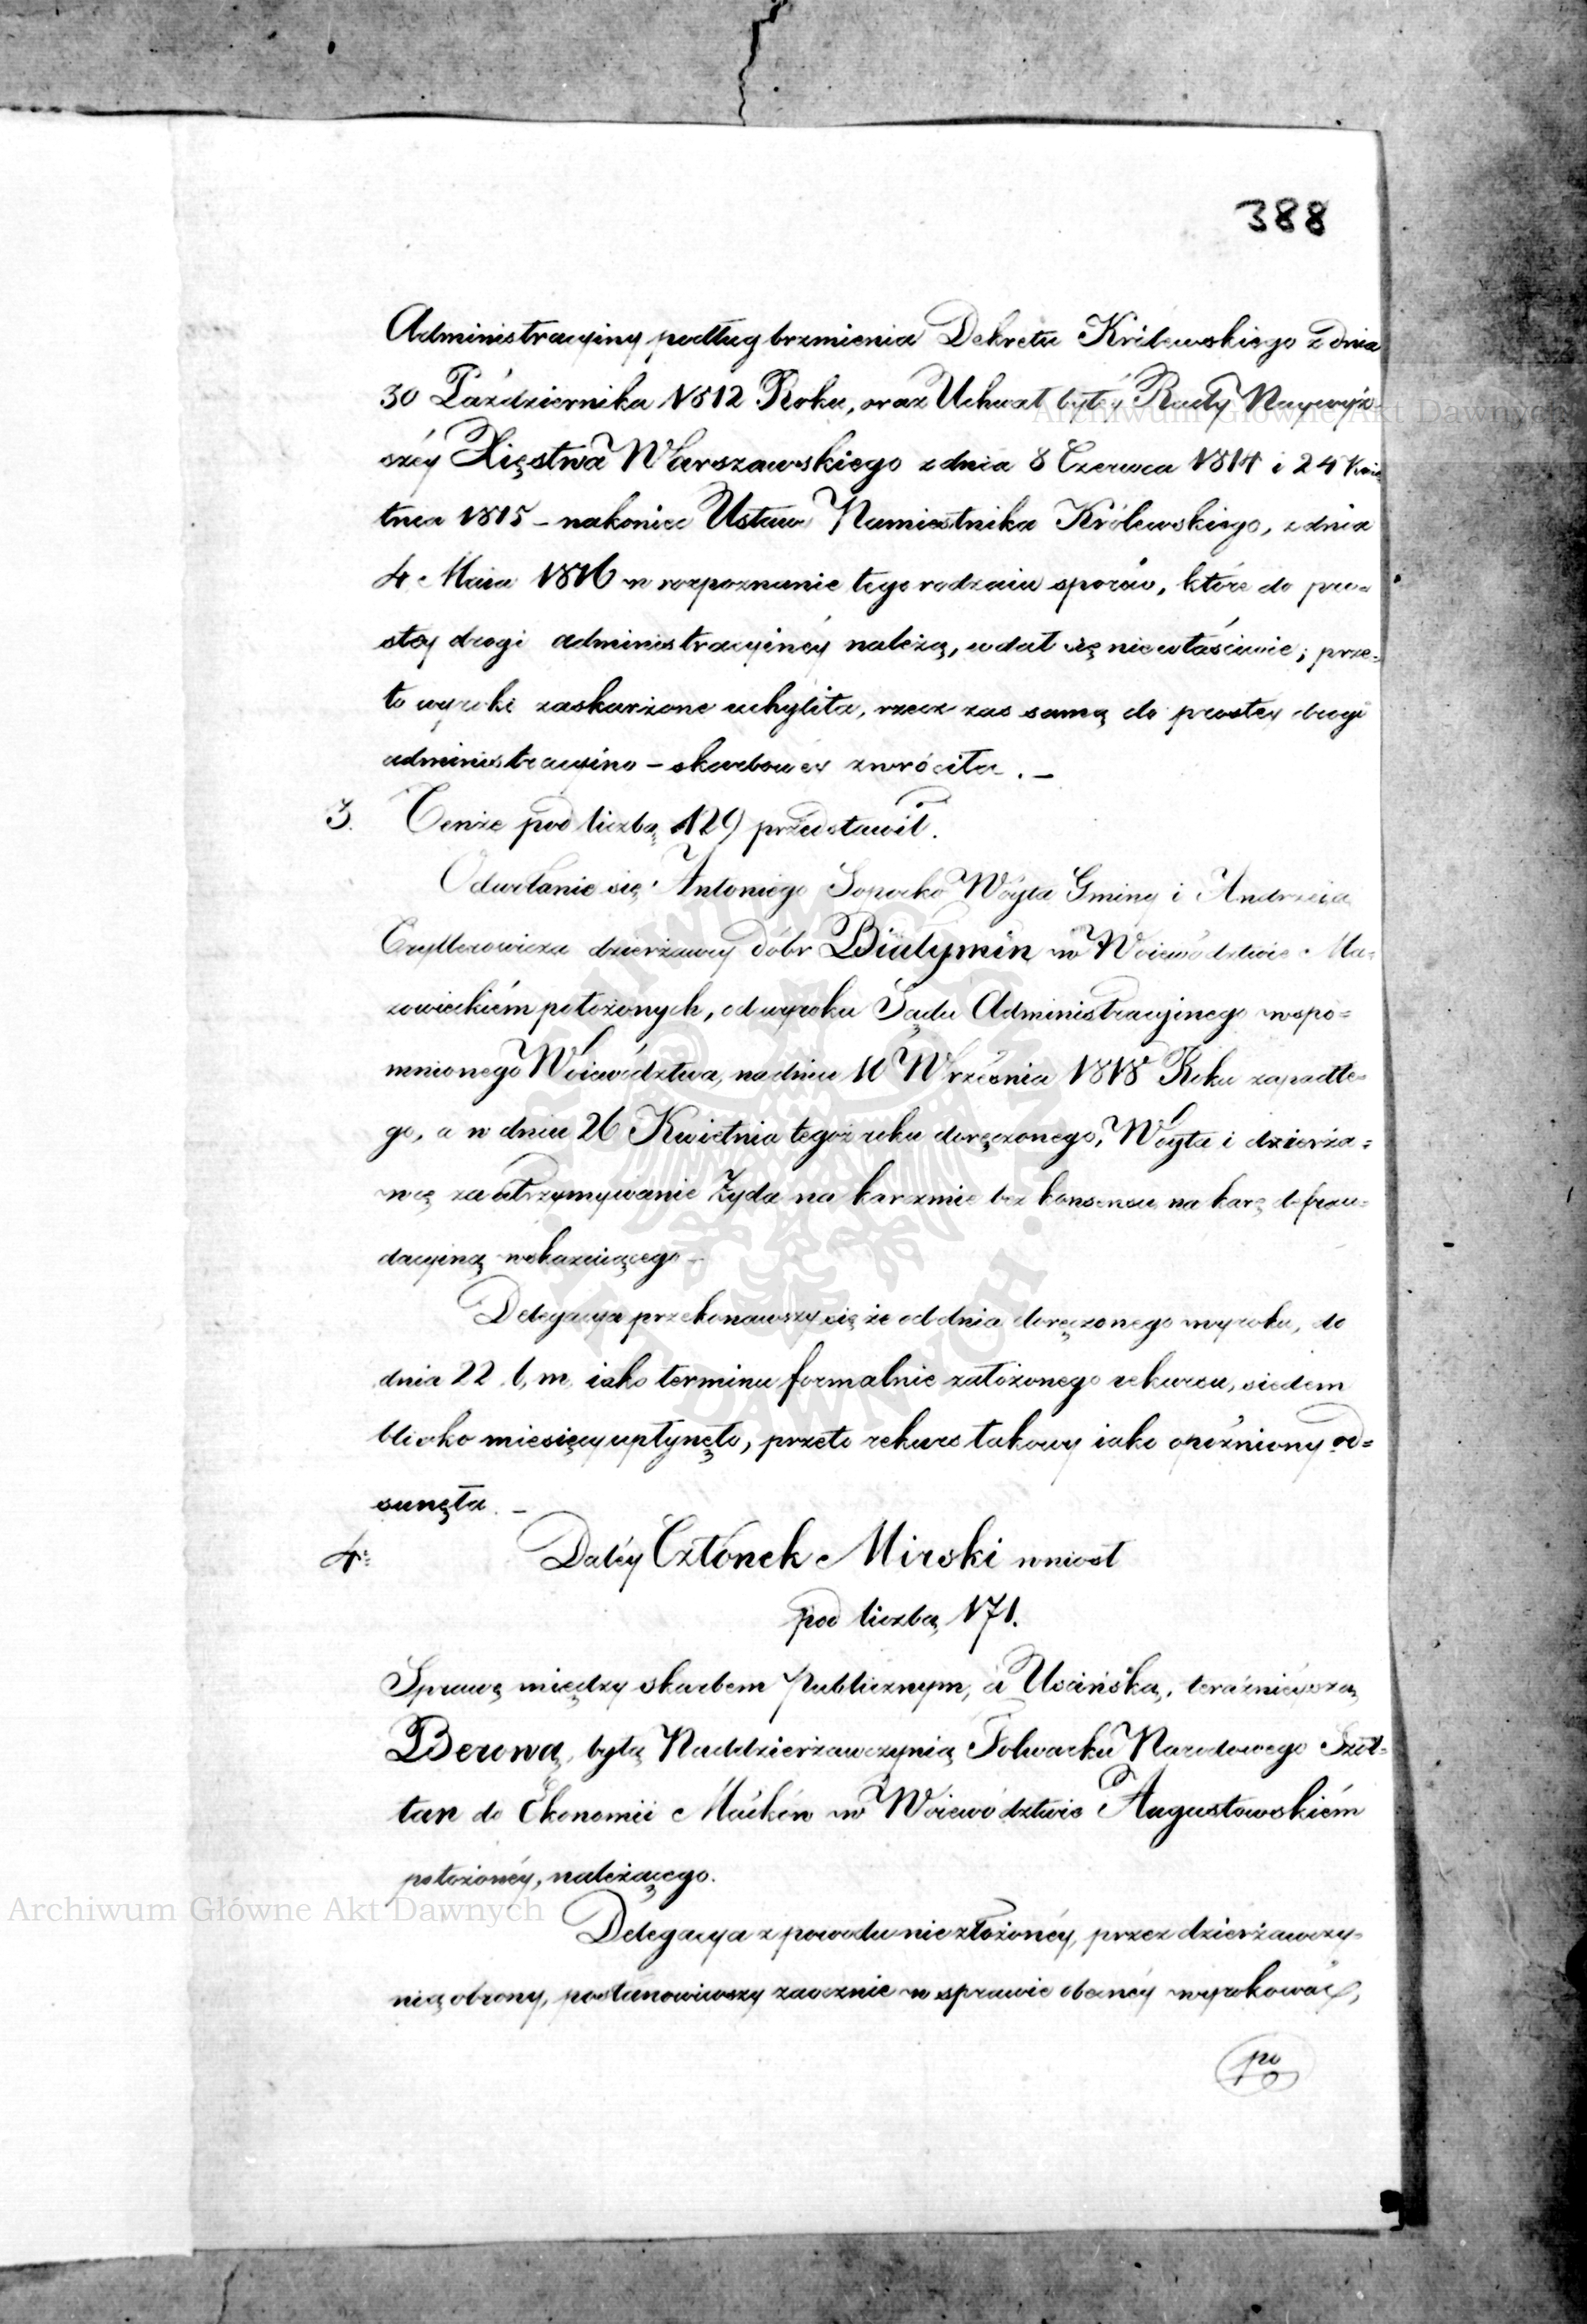 388
Administracyiny podług brzmienia Dekretu Królewskiego z dnia
30 Października 1812 Roku, oraz Uchwał byłéy Rady Naywyż
széy Xięstwa Warszawskiego z dnia 8 Czerwca 1814 i 24 Kwie
tnia 1815 – nakoniec Ustaw Namiestnika Królewskiego, z dnia
4 Maia 1816 w rozpoznanie tego rodzaiu sporów, które do pro=
stéy drogi administracyinéy należą, wdał się niewłaściwie; prze=
to wyroki zaskarżone uchyliła, rzecz zas samą do prostey drogi
administracyino – skarbowey zwróciła. –
3. Tenże pod liczbą 129 przedstawił.
Odwołanie się Antoniego Sopocko Wóyta Gminy i Andrzeia
dzierżawcy dóbr Białymin w Woiewództwie Ma=
zowieckiém położonych, od wyroku Sądu Administracyinego wspo=
mnionego Woiewództwa, na dniu 10 Września 1818 Roku zapadłe=
go, a w dniu 26 Kwietnia tegoż roku doręczonego, Wóyta i dzierża=
wcę za utrzymywanie Żyda na karczmie bez konsensu na karę defrau=
dacyiną wskazuiącego –
Delegacya przekonawszy się że od dnia doręczonego wyroku, do
dnia 22 b. m. iako terminu formalnie założonego rekursu, siedem
blisko miesięcy upłynęło, przeto rekurs takowy iako opóźniony od=
sunęła. –
4. Daléy Członek Mirski wniosł
pod liczbą 171.
Sprawę między skarbem Publicznym, a Uscińską, teraźnieyszą
Berową, byłą Naddzierżawczynią Folwarku Narodowego Szoł=
tan do Ekonomii Maćków w Woiewództwie Augustowskiém
położonéy, należącego.
Delegacya z powodu nie złożonéy, przez dzierżawczy=
nią obrony, postanowiwszy zaocznie w sprawie obecnéy wyrokować,
po
Archiwum Główne Akt Dawnych
Archiwum Główne Akt Dawnych